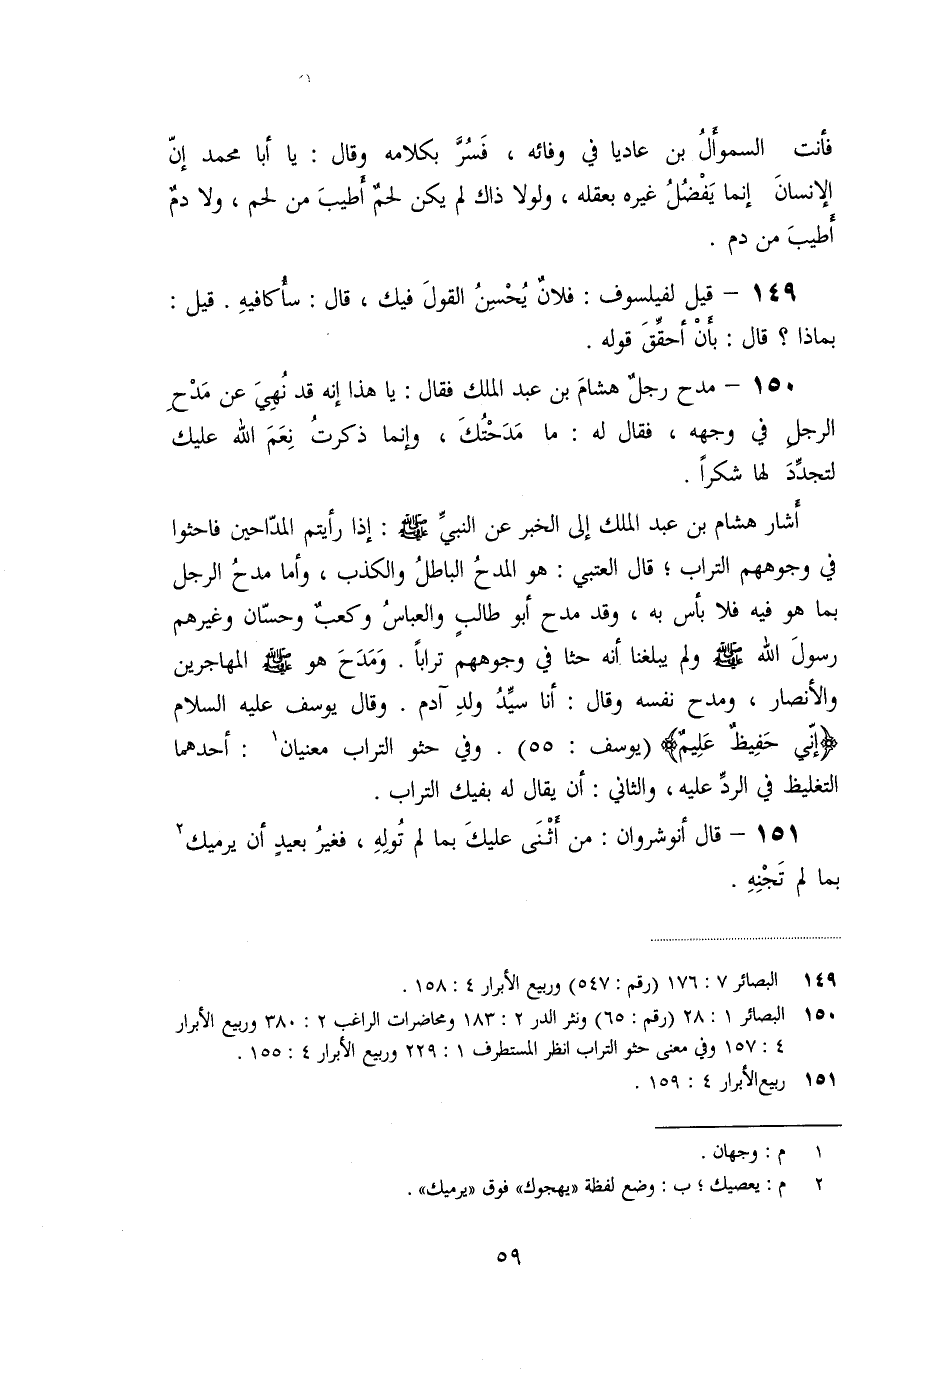 فأنت السموأَلُ بن عاديا في وفائه ، فَسُرَّ بكلامه وقال : يا أبا محمد إنّ
الإنسانَ إنما يَفْضُلُ غيره بعقله ، ولولا ذاك لم يكن لحمٌ أَطيبَ من لحم ، ولا دمٌ
أَطيبَ من دم .
١٤٩ – قيل لفيلسوف : فلانٌ يُحْسِنُ القولَ فيك ، قال : سأُكافيهِ . قيل :
بماذا ؟ قال : بأَنْ أحقِّقَ قوله .
١٥٠ – مدح رجلٌ هشامَ بن عبد الملك فقال : يا هذا إنه قد نُهِيَ عن مَدْحِ
الرجلِ في وجهه ، فقال له : ما مَدَحْتُكَ ، وإنما ذكرتُ نِعَمَ الله عليك
لتجدِّدَ لها شكراً .
أَشار هشام بن عبد الملك إلى الخبر عن النبيِّ ﷺ : إذا رأيتم المدّاحين فاحثوا
في وجوههم التراب ؛ قال العتبي : هو المدحُ الباطلُ والكذب ، وأما مدحُ الرجل
بما هو فيه فلا بأس به ، وقد مدح أبو طالبٍ والعباسُ وكعبٌ وحسّان وغيرهم
رسولَ الله ﷺ ولم يبلغنا أنه حثا في وجوههم تراباً . وَمَدَحَ هو ﷺ المهاجرين
والأنصار ، ومدح نفسه وقال : أنا سيِّدُ ولدِ آدم . وقال يوسف عليه السلام
﴿إنّي حَفِيظٌ عَلِيمٌ﴾ (يوسف : ٥٥) . وفي حثو التراب معنيان١ : أحدهما
التغليظ في الردِّ عليه ، والثاني : أن يقال له بفيك التراب .
١٥١ – قال أنوشروان : من أَثْنَى عليكَ بما لم تُولِهِ ، فغيرُ بعيدٍ أن يرميك٢
بما لم تَجْنِهِ .
١٤٩ البصائر ٧ : ١٧٦ (رقم : ٥٤٧) وربيع الأبرار ٤ : ١٥٨ .
١٥٠ البصائر ١ : ٢٨ (رقم : ٦٥) ونثر الدر ٢ : ١٨٣ ومحاضرات الراغب ٢ : ٣٨٠ وربيع الأبرار
٤ : ١٥٧ وفي معنى حثو التراب انظر المستطرف ١ : ٢٢٩ وربيع الأبرار ٤ : ١٥٥ .
١٥١ ربيع الأبرار ٤ : ١٥٩ .
١ م : وجهان .
٢ م : يعصيك ؛ ب : وضع لفظة «يهجوك» فوق «يرميك» .
٥٩